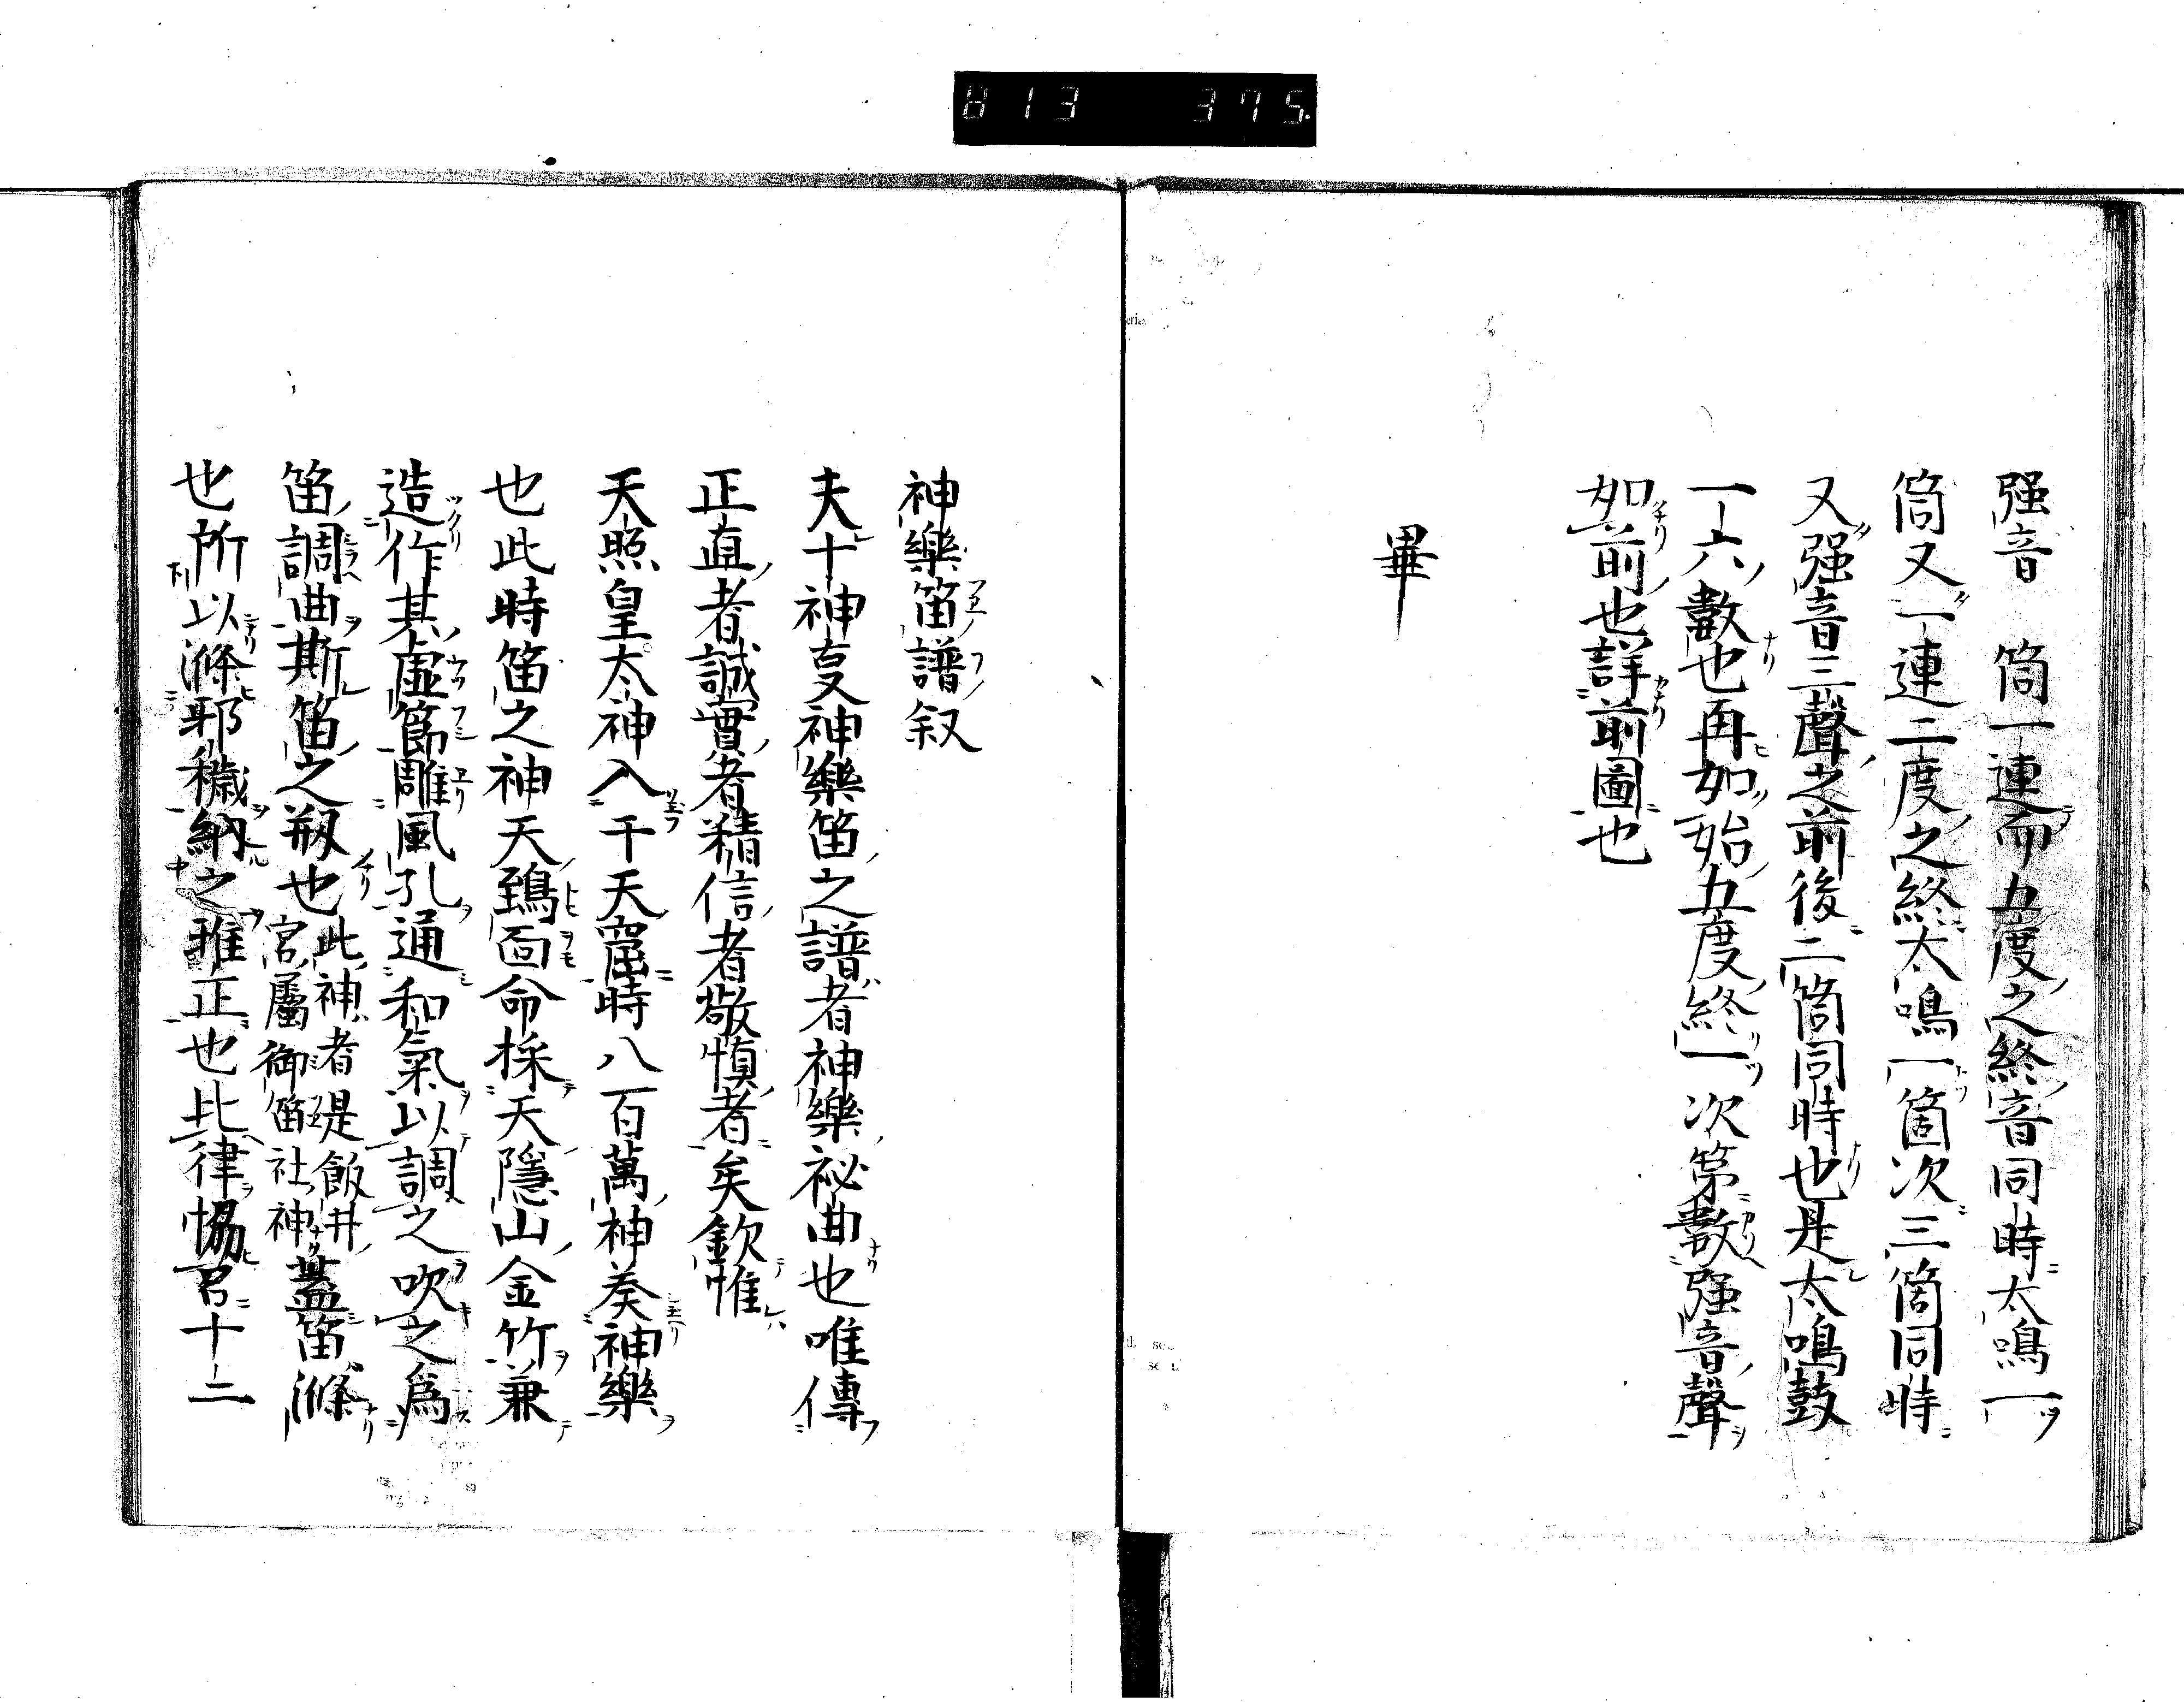 813 375.
强音 筒一連而五度之終音同時太鳴一
筒又一連二度之終太鳴一箇次三箇同時
又强音三聲之前後二箇同時也是太鳴鼓
一六數也再如始五度終一次第數强音聲
如前也詳前圖也
畢
神樂笛譜叙
夫十神妥神樂笛之譜者神樂祕曲也唯傳
正直者誠實者精信者敬慎者矣欽惟
天照皇太神入于天窟時八百萬神奏神樂
也此時笛之神天鵄面命採天隱山金竹兼
造作其虛節雕風孔通和氣以調之吹之爲
笛調曲斯笛之剏也
此神者是飯井
宮屬御笛社神
蓋笛滌
也所以滌邪穢納之雅正也比律協呂十二